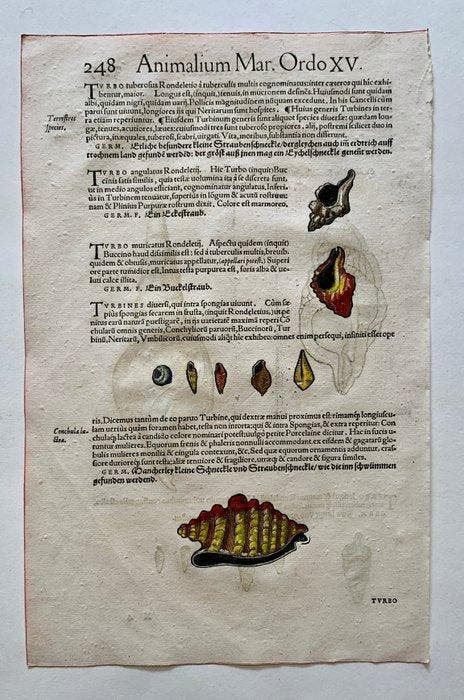 248 Animalium Mar. Ordo XV.
TVRBO tuberosus Rondeletio à tuberculis multis cognominatus: inter cæteros qui hic exhi-
bentur, maior. Longus est, (inquit,) tenuis, in mucronem desinẽs. Huiusmodi sunt quidam
albi, quidam nigri, quidam uarij. Pollicis magnitudinem nõquam excedunt. In his Cancelli cùm
parui sunt uiuunt, longiores ijs qui Neritarum sunt hospites. ¶ Huius generis Turbines in ter-
Terrestres
species.
ra etiam reperiuntur. ¶ Eiusdem Turbinum generis sunt aliquot species diuersæ: quædam lon-
gæ, tenues, acutiores, læues: eiusmodi tres sunt tuberoso propiores. alij, postremi scilicet duo in
pictura, inæquales, tuberosi, scabri, uirgati. Vita, moribus, substantia non differunt.
GERM. Etliche besundere kleine Straubenschneckle/ dergleychen auch im erdtrich auff
trochnem land gefundẽ werdẽ: der gröst auß jnen mag ein Eychelschneckle genent werden.
TVRBO angulatus Rondeletij. Hic Turbo (inquit) Buc
cinis satis similis, quia testæ uolumina ita à se discreta sunt,
ut in medio angulos efficiant, cognominatur angulatus, Inferi-
us in Turbinem tenuatur, superius in lõgum & acutũ rostrum:
nam & Plinius Purpuræ rostrum dixit. Colore est marmoreo.
GERM. F. Ein Eckestraub.
TVRBO muricatus Rondeletij. Aspectu quidem (inquit)
Buccino haud dissimilis est: sed à tuberculis multis, breuib.
quidem & obtusis, muricatus appellatur, (appellari potest.) Superi
ore parte tumidior est. Intus testa purpurea est, foris alba & ue-
luti calce illita.
GERM. F. Ein Buckelstraub.
TVRBINES diuersi, qui intra spongias uiuunt. Cùm sæ-
pius spongias secarem in frusta, (inquit Rondeletius,) ut pe-
nitus earũ naturã peruestigarẽ, in ijs uarietatẽ maximã reperi Cõ
chularũ omnis generis, Conchyliorũ paruorũ, Buccinorũ, Tur
binũ, Neritarũ, Vmbilicorũ, cuiusmodi aliqt hic exhibeo: omnes enim persequi, infiniti esset ope
ris. Dicemus tantùm de eo paruo Turbine, qui dextræ manui proximus est: rimam ẽ longiuscu-
lam utrinq; quàm foramen habet, testa non intorta: qui & intra Spongias, & extra reperitur. Con
Conchula la-
ctea.
chulaq; lactea à candido colore nominari potest: uulgò petite Porcelaine dicitur. Hac in fucis u-
tuntur mulieres. Equorum frenis & phaleris nonnulli accommodant. ex eisdem & gagatarũ glo-
bulis mulieres monilia & cingula contexunt, &c. Sed quæ equorum ornamentis adduntur, cras-
siore durioreq́; sunt testa: aliæ tenuiore & fragiliore. utræq; & candore & figura similes.
GERM. Mancherley kleine Schneckle vnd Straubenschneckle/ wie die inn schwümmen
gefunden werdend.
TVRBO